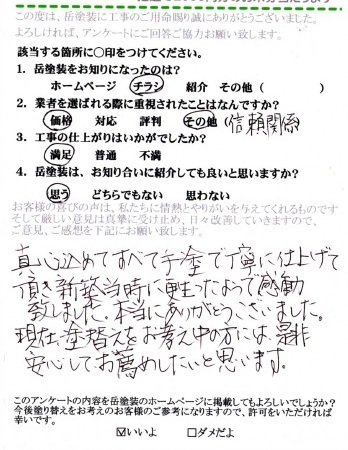 この度は、岳塗装に工事のご用命賜り誠にありがとうございました。
よろしければ、アンケートにご回答ご協力お願い致します。
該当する箇所に○印をつけてください。
1. 岳塗装をお知りになったのは?
ホームページ チラシ 紹介 その他 ( )
2. 業者を選ばれる際に重視されたことはなんですか?
価格 対応 評判 その他 (信頼関係
3. 工事の仕上がりはいかがでしたか?
満足 普通 不満
4. 岳塗装は、お知り合いに紹介しても良いと思いますか?
思う どちらでもない 思わない
お客様の喜びの声は、私たちに情熱とやりがいを与えてくれるものです
そして厳しい意見は真摯に受け止め、日々改善していきますので、
ご意見、ご感想を下記にお願い致します。
真心込めてすべて手塗で丁寧に仕上げて
頂き新築当時に甦ったようで感動
致しました。本当にありがとうございました。
現在、塗替えをお考え中の方には、是非
安心してお薦めしたいと思います。
このアンケートの内容を岳塗装のホームページに掲載してもよろしいでしょうか?
今後塗り替えをお考えのお客様のご参考になりますので、許可をいただければ
幸いです。
☑いいよ □ダメだよ